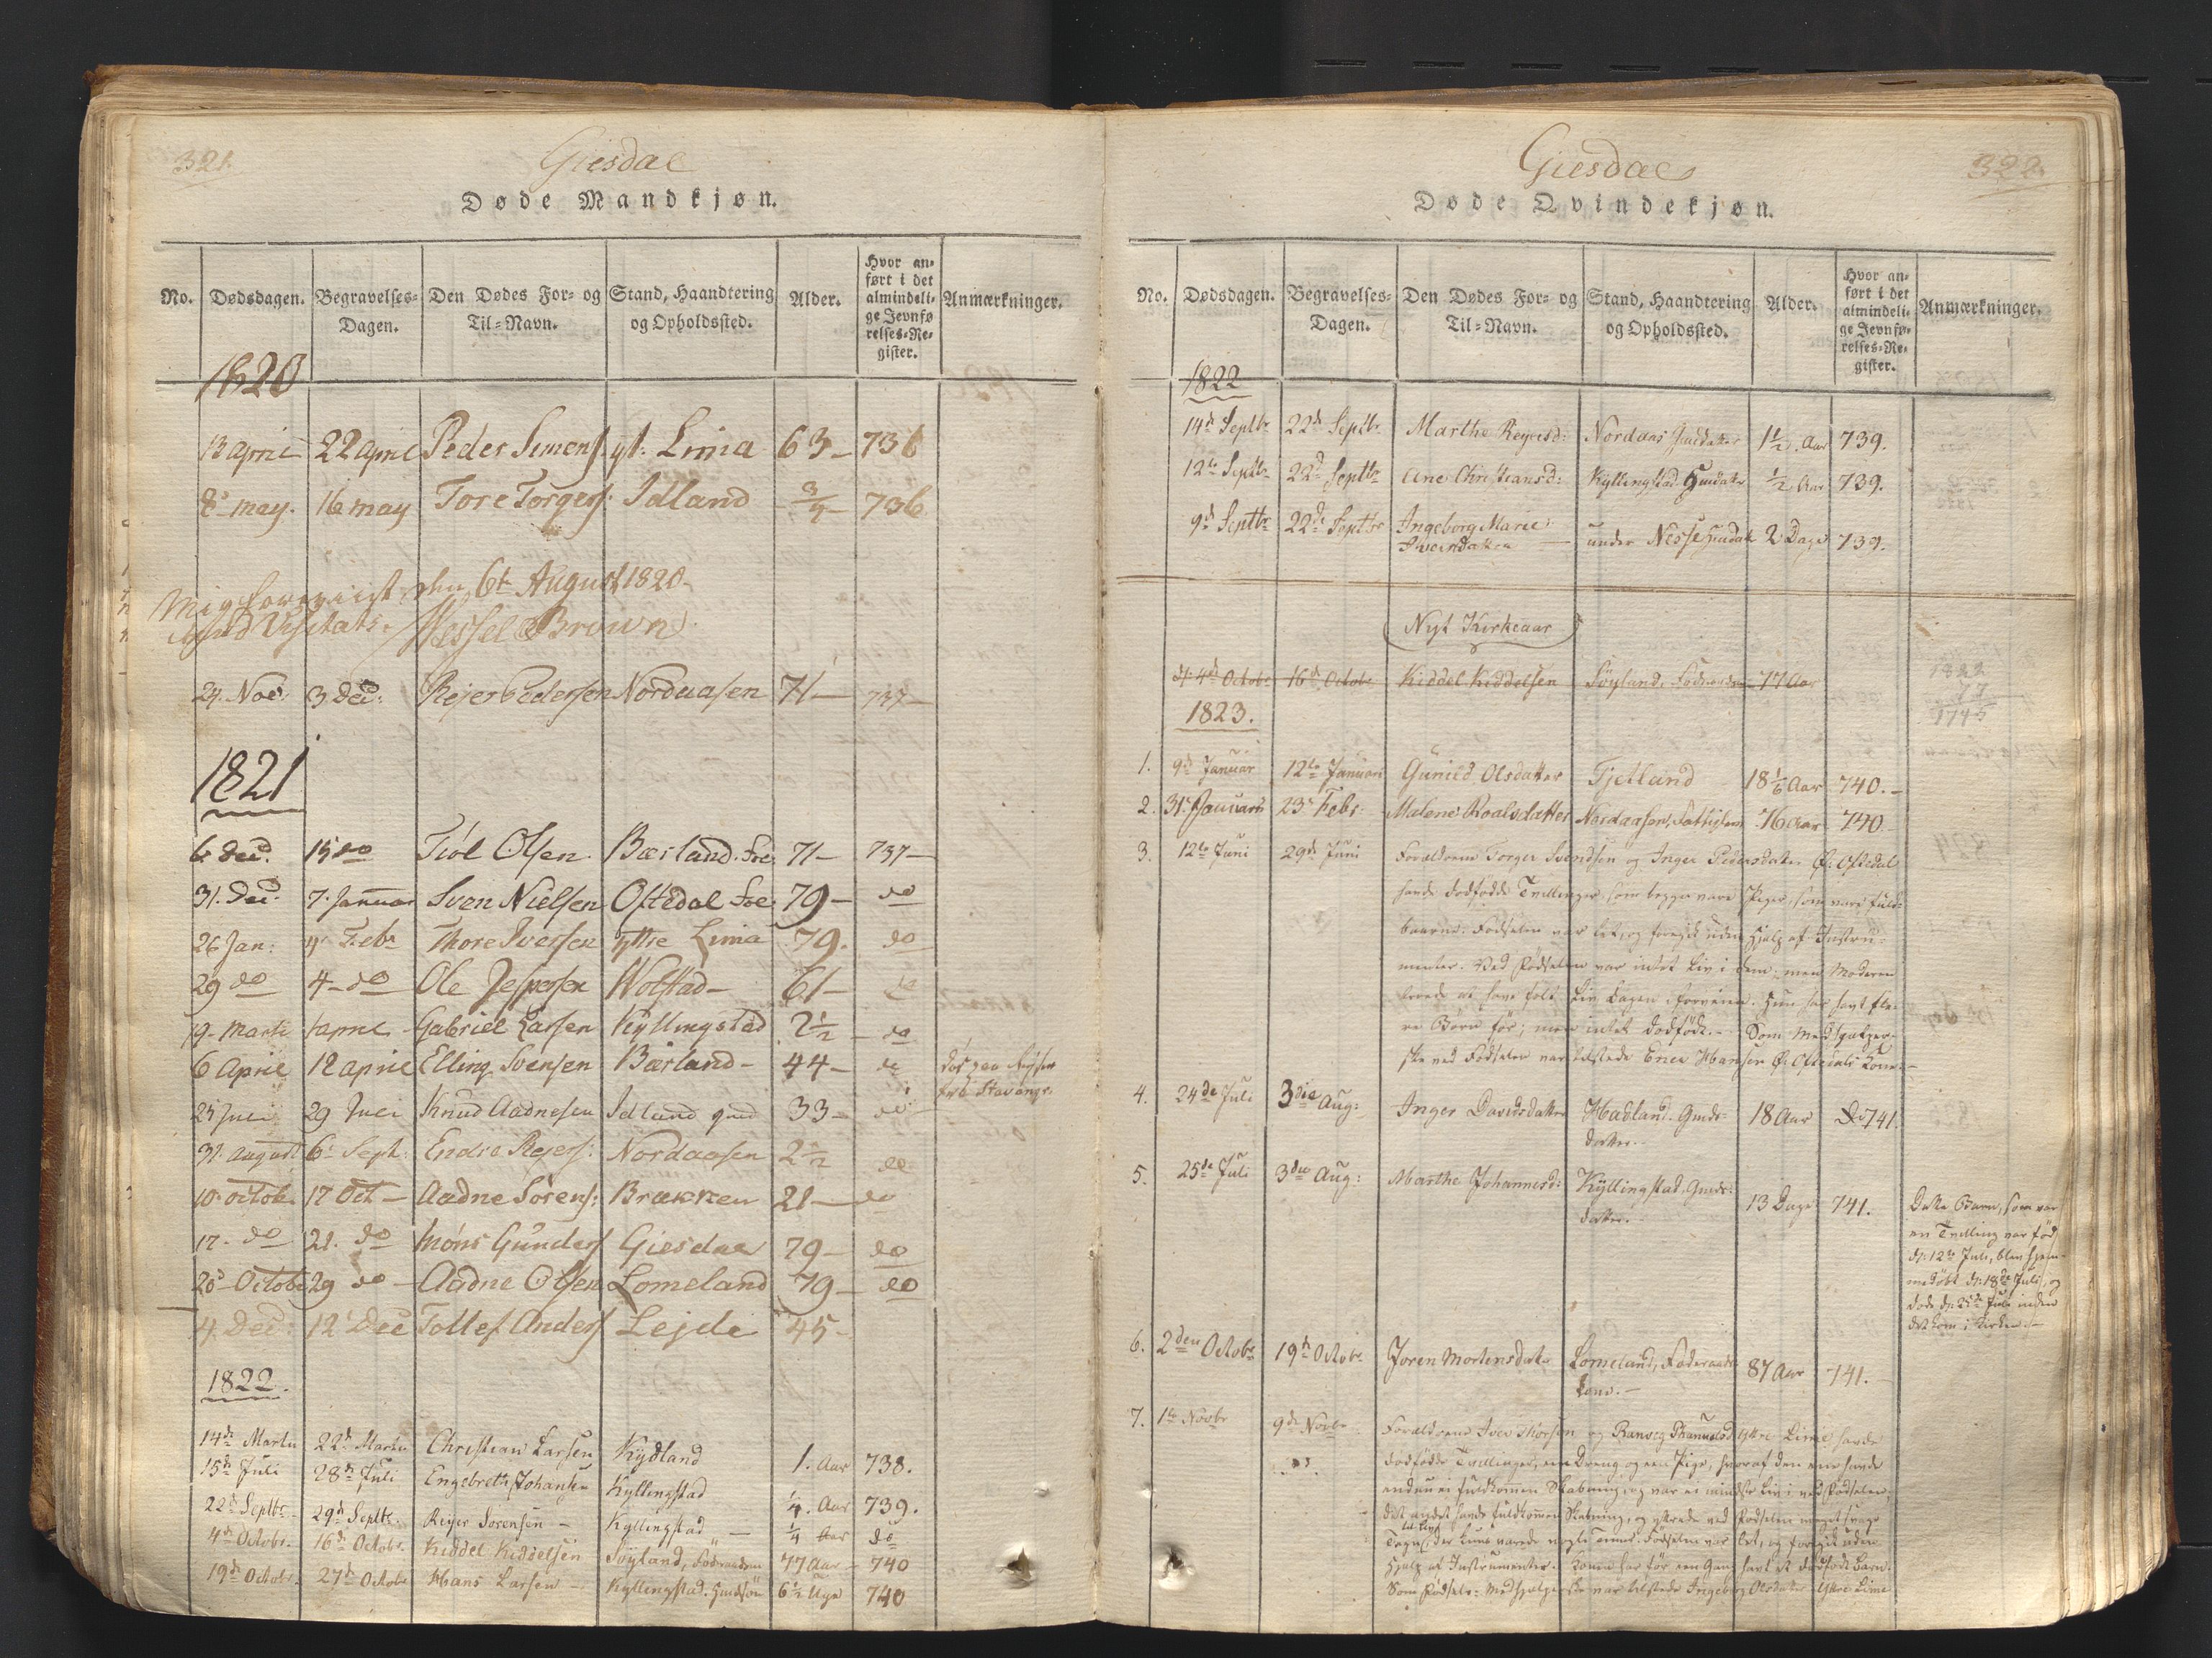 321.
Giesdal
Døde Mandkjøn.
No. Dødsdagen. Begravelses-Dagen. Den Dødes For- og Til-Navn. Stand, Haandtering og Opholdssted. Alder. Hvor anført i det almindelige Jevnførelses-Register. Anmærkninger.
1820
13 april 22 april Peder Simens. yt. Lima 63 – 736
8 may. 16 may Tore Torgers: Idland 3/4 – 736
den 6te August 1820
Visitats. Wessel Brown
24. Nov: 3 Dec: Rejer Pedersen Nordaasen 71 – 737 –
1821
6 Dec. 15 do Tiøl Olsen Bærland. 71 – 737 –
31. Dec. 7. Januar Sven Nielsen Oftedal 79 – do
26 Jan: 4 Febr Thore Iversen yttre Lima 79. do
29 do 4 – do Ole Jespersen Wolstad – 61 – do
19 – Marti 1 april Gabriel Larsen Kyllingstad 2 1/2 – do
6 April 12 april Elling Svensen Bærland – 44 – do
25 Juli 29 Juli Knud Aadnesen Idland 33 – do
31. august 6 Sept: Endre Rejers: Nordaasen 2 1/2 do
10 October 17 Oct – Aadne Sørens: Brækken 21 – do
17 – do 21. do Móns Gunders Giesdal 79 – do
20 October 29 do – Aadne Olsen Lomeland 79 – do
4. Dec: 12 Dec Tollef Anders Lejde 45 –
1822.
14de Martii 22de Martii Christian Larsen Kydland 1. Aar 738.
15de Juli 28de Juli Engebreth Kyllingstad 1/4. Aar 739.
22de Septbr 29de Septbr. Reyer Sørensen – Kyllingstad – 1/4 Aar do
4de Octobr. 16de Octobr. Kiddel Kiddelsen Søyland, 77 Aar – 740
19de Octobr. 27de Octobr Hans Larsen – Kyllingstad. 6 1/2 Uge 740
Giesdal
322.
Døde Qvindekjøn.
No. Dødsdagen. Begravelses-Dagen. Den Dødes For- og Til-Navn. Stand, Haandtering og Opholdssted. Alder. Hvor anført i det almindelige Jevnførelses-Register. Anmærkninger.
1822
14de Septbr 22de Septbr Marthe Reyersd: Nordaas 1 1/2. Aar 739.
12te Septbr 22de Septbr Ane Christiansd: Kyllingstad 1/2 Aar 739.
9de Septbr 22de Septbr Ingeborg Marie under Nesse 2 Dage 739.
Nyt Kirkeaar
d. 4de Octobr 16de Octobr Kiddel Kiddelsen Søyland. 77 Aar
1822
77
1745
1823.
1. 9de Januar 12te Januari Gunild Olsdatter Tjetland 18 1/6 Aar 740. –
2. 31te Januari 23de Febr: Malene Roalsdatter Nordaasen, 76 Aar 740
3. 12te Juni 29de Juni Forældrene Torger Svendsen og Inger Pedersdatter Ø: Oftedal
havde dødfødde Tvillinger, som begge vare Piger, som vare fuld-
baarne. Fødselen var let, og foregik uden Hjelp af Instru-
menter. Ved Fødselen var intet Liv i dem; men Moderen
have følt Liv Dagen iforveien. Hun har havt fle-
re Børn før; men intet dødfødt. – Som Medhjelper-
ske ved Fødselen var tilstede Hansen Ø: Oftedals Kone. –
4. 24de Juli 3die Aug: Inger Davidsdatter Hadland. Gmds- 18 Aar do 741.
datter. –
5. 25de Juli 3die Aug: Marthe Johannesd: Kyllingstad. Gmds- 13 Dage 741.
datter. –
Dette Barn, som var
en Tvilling var fød
d: 12te Juli, blev hjem-
medøbt d: 18de Juli, og
døde d: 25de Juli inden
det kom i Kirken. –
6. 2den Octobr 19de Octobr Joren Mortensdatter Lomeland, Føderaads- 87 Aar 741. –
kone. –
7. 1te Novbr 9de Novbr Forældrene Iver Thorsen og Ranveg ytre Lime havde
dødfødde Tvillinger, en Dreng og en Pige, hvoraf den ene havde
endnu ei fuldkommen Skabning, og var ei mindste Liv i ved Fødselen;
det andet havde fuldkommen Skabning, og ytrede ved Fødselen meget svage
Tegn til Liv, der kuns varede nogle Timer. Fødselen var let, og foregik uden
Hjelp af Instrumenter. Konen har før een Gang havt et dødfødt Barn.
Som Fødsels-Medhjelperske var tilstede Ingeborg Olsdatter ytre Lime